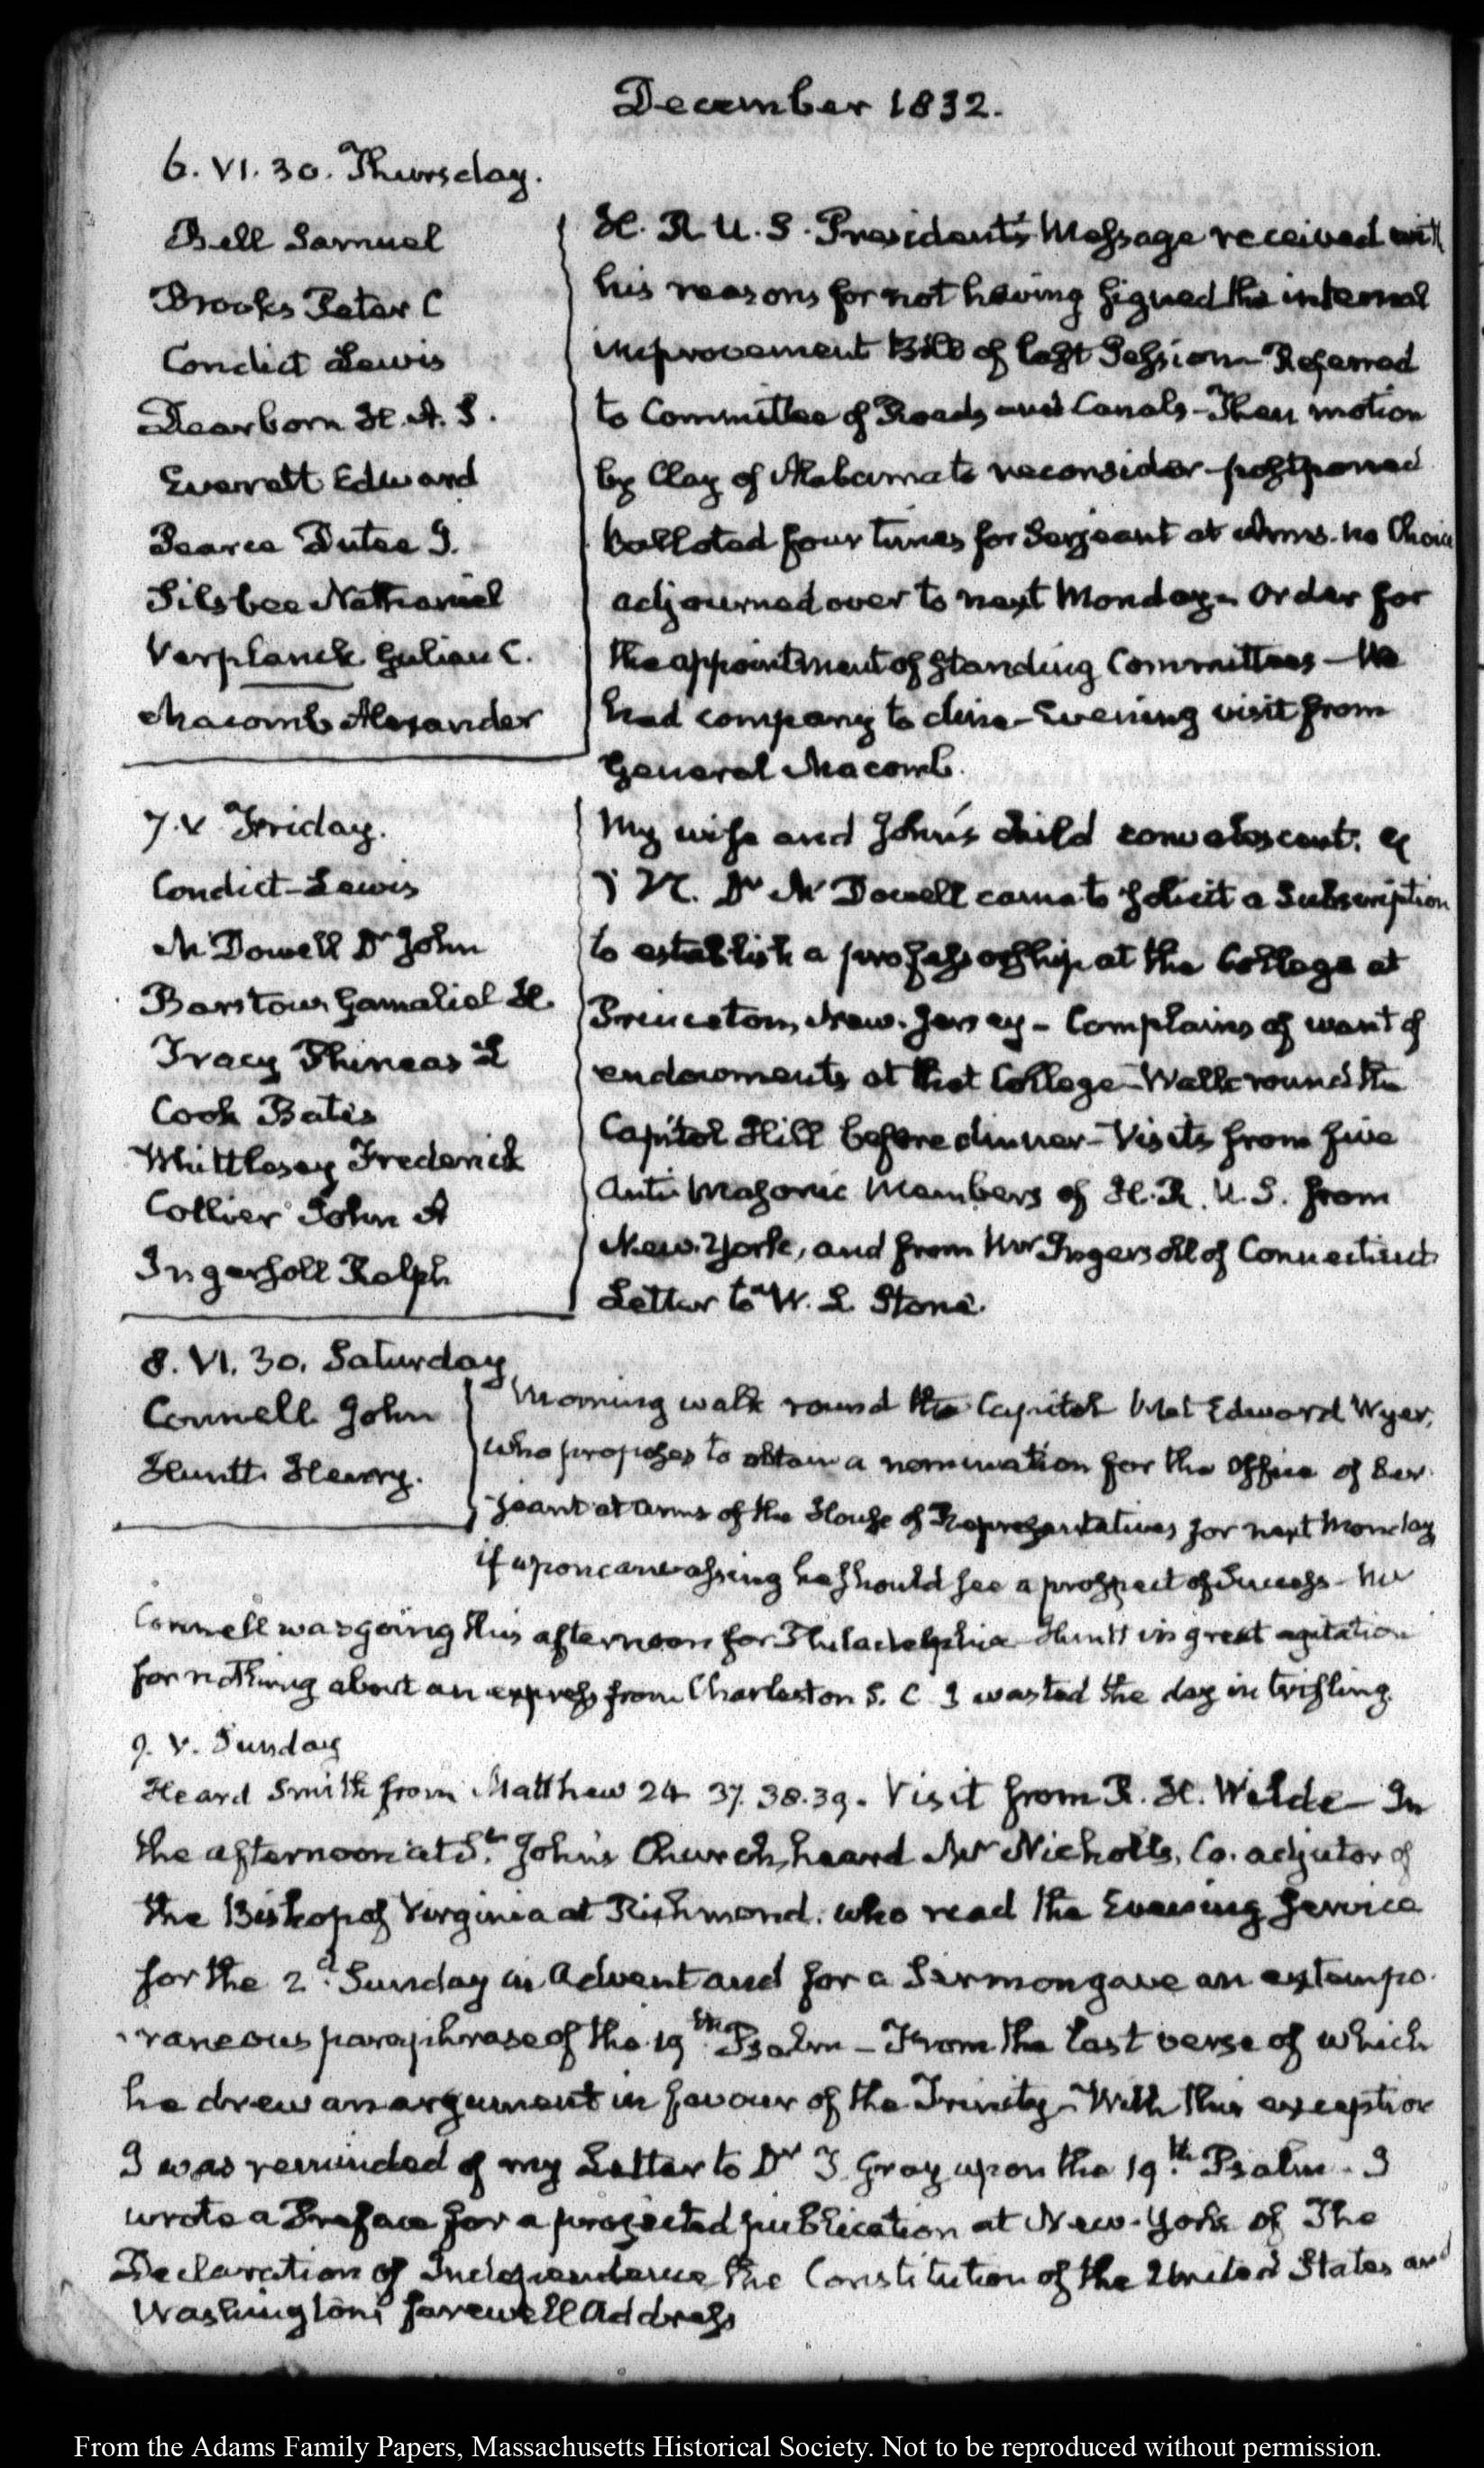 December 1832.
6. VI. 30. Thursday.
Bell Samuel
Brooks Peter C
Condict Lewis
Dearborn H. A. S.
Everett Edward
Pearce Dutee J.
Silsbee Nathaniel
Verplanck Gulian C.
Macomb Alexander
H. R U. S. President's Message received with
his reasons for not having signed the internal
improvement Bill of last Session - Referred
to Committee of Roads and Canals - Then motion
by Clay of Alabama to reconsider - postponed
balloted four times for Serjeant at Arms. no Choice
adjourned over to next Monday - Order for
the appointment of standing Committees - We
had company to dine - Evening visit from
General Macomb.
7. V Friday.
Condict - Lewis
McDowell Dr John
Barstow Gamaliel H.
Tracy Phineas L
Cook Bates
Whittlesey Frederick
Collier John A
Ingersoll Ralph
My wife and John's child convalescent.
Dr McDowell came to solicit a Subscription
to establish a professorship at the College at
Princeton, New-Jersey - Complains of want of
endowments at that College - Walk round the
Capitol Hill before dinner - Visits from five
Anti Masonic Members of H. R. U. S. from
New-York, and from Mr Ingersoll of Connecticut
Letter to W. L Stone.
8. VI. 30. Saturday
Connell John
Huntt Henry.
Morning walk round the Capitol Met Edward Wyer,
who proposes to obtain a nomination for the Office of Ser
jeant at arms of the House of Representatives for next Monday
if upon canvassing he should see a prospect of Success - Mr
Connell was going this afternoon for Philadelphia - Huntt in great agitation
for nothing about an express from Charleston S. C I wasted the day in trifling.
9. V. Sunday
Heard Smith from Matthew 24 37. 38. 39. Visit from R. H. Wilde - In
the afternoon at St. John's Church, heard Mr Nicholls, Co. adjutor of
the Bishop of Virginia at Richmond. who read the Evening service
for the 2d. Sunday in Advent and for a Sermon gave an extempo-
raneous paraphrase of the 19th. Psalm - From the last verse of which
he drew an argument in favour of the Trinity - With this exception
I was reminded of my Letter to Dr T Gray upon the 19th. Psalm - I
wrote a Preface for a projected publication at New-York of The
Declaration of Independence, the Constitution of the United States and
Washington's farewell Address
From the Adams Family Papers, Massachusetts Historical Society. Not to be reproduced without permission.